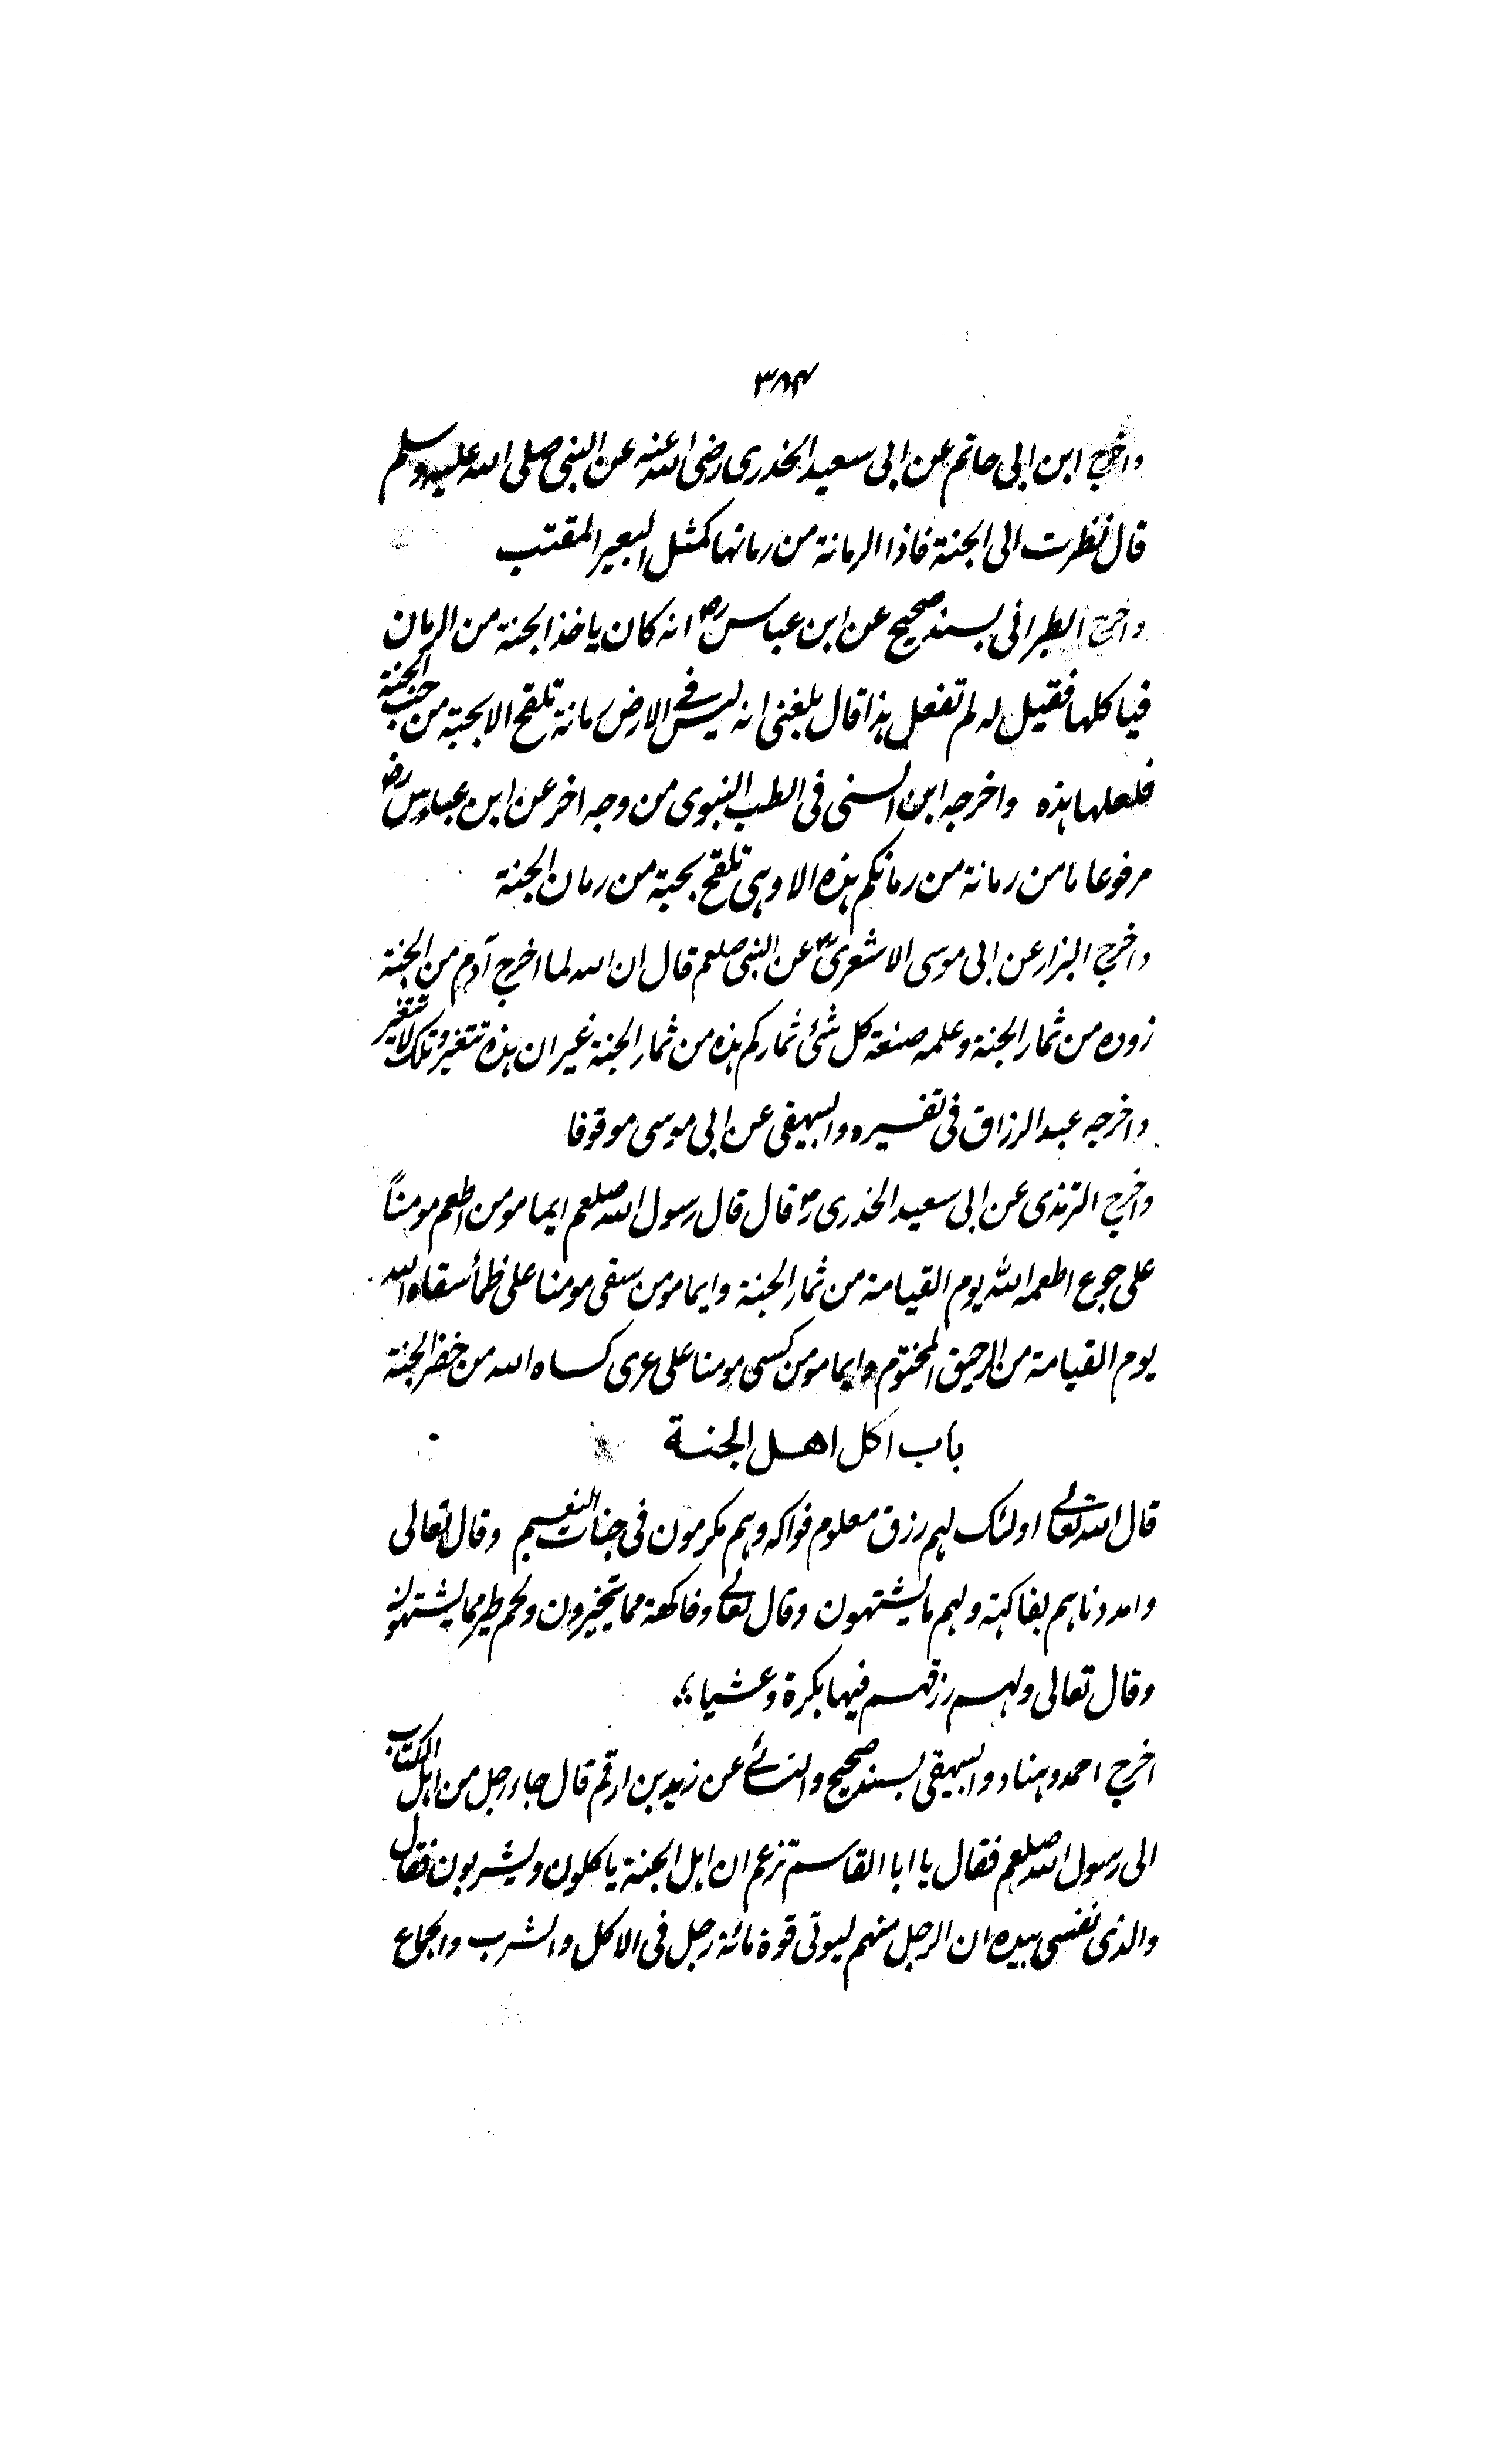 ۳۸۴
واخرج ابن ابی حاتم عن ابی سعید الخدری رضی اللہ عنہ عن النبی صلی اللہ علیہ وسلم
قال نظرت الی الجنۃ فاذا الرمانۃ من رمانہا کمثل البعیر المقتب
واخرج الطبرانی بسند صحیح عن ابن عباس رض انہ کان یاخذ الحبۃ من الرمان
فیاکلہا فقیل لہ لم تفعل ہذا قال بلغنی انہ لیس فی الارض رمانۃ تلقح الا بحبۃ من حب الجنۃ
فلعلہا ہذہ واخرجہ ابن السنی فی الطب النبوی من وجہ اخر عن ابن عباس رض
مرفوعا ما من رمانۃ من رمانکم ہذہ الا وہی تلقح بحبۃ من رمان الجنۃ
واخرج البزار عن ابی موسی الاشعری رض عن النبی صلعم قال ان اللہ لما اخرج آدم من الجنۃ
زودہ من ثمار الجنۃ وعلمہ صنعۃ کل شئ ثمارکم ہذہ من ثمار الجنۃ غیر ان ہذہ تتغیر وتلک لا تتغیر
واخرجہ عبد الرزاق فی تفسیرہ والبیہقی عن ابی موسی موقوفا
واخرج الترمذی عن ابی سعید الخدری رض قال قال رسول اللہ صلعم ایما مومن اطعم مومناً
علی جوع اطعمہ اللہ یوم القیامۃ من ثمار الجنۃ وایما مومن سقی مومنا علی ظمأ سقاہ اللہ
یوم القیامۃ من الرحیق المختوم وایما مومن کسی مومنا علی عری کساہ اللہ من خضر الجنۃ
باب اکل اهل الجنة
قال اللہ تعالے اولئک لہم رزق معلوم فواکہ وہم مکرمون فی جنات النعیم وقال تعالی
وامددناہم بفاکہۃ ولہم ما یشتہون وقال تعالے وفاکھۃ مما یتخیرون ولحم طیر مما یشتہون
وقال تعالی ولہم رزقہم فیہا بکرۃ وعشیا
اخرج احمد وہناد والبیہقی بسند صحیح والنسائے عن زید بن ارقم قال جاء رجل من اہل الکتاب
الی رسول اللہ صلعم فقال یا ابا القاسم تزعم ان اہل الجنۃ یاکلون ویشربون فقال
والذی نفسی بیدہ ان الرجل منہم لیوتی قوۃ مائۃ رجل فی الاکل والشرب والجماع